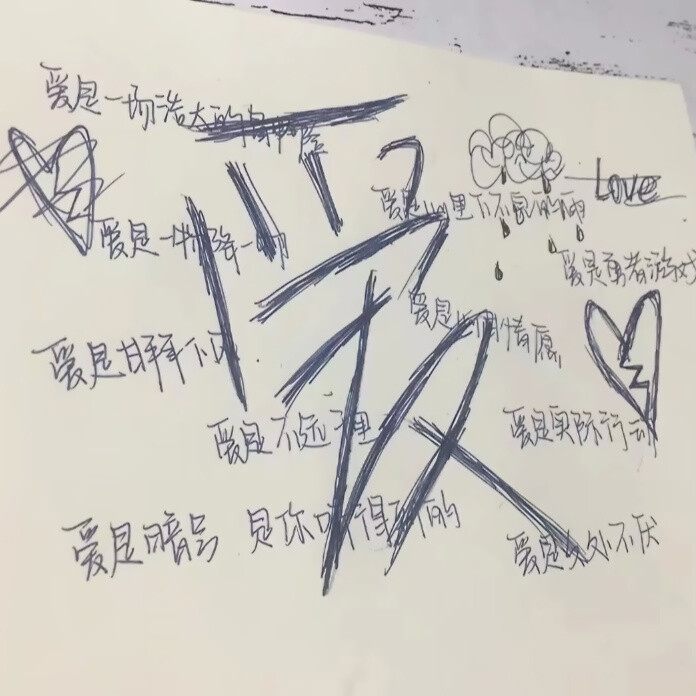 爱是一场浩大的自
爱
Love
爱是心里下不完的雨
爱是一物降一物
爱是勇者游戏
爱是心甘情愿
爱是甘拜下风
爱是不远千里
爱是实际行动
爱是暗号 是你听得
的
爱是久处不厌